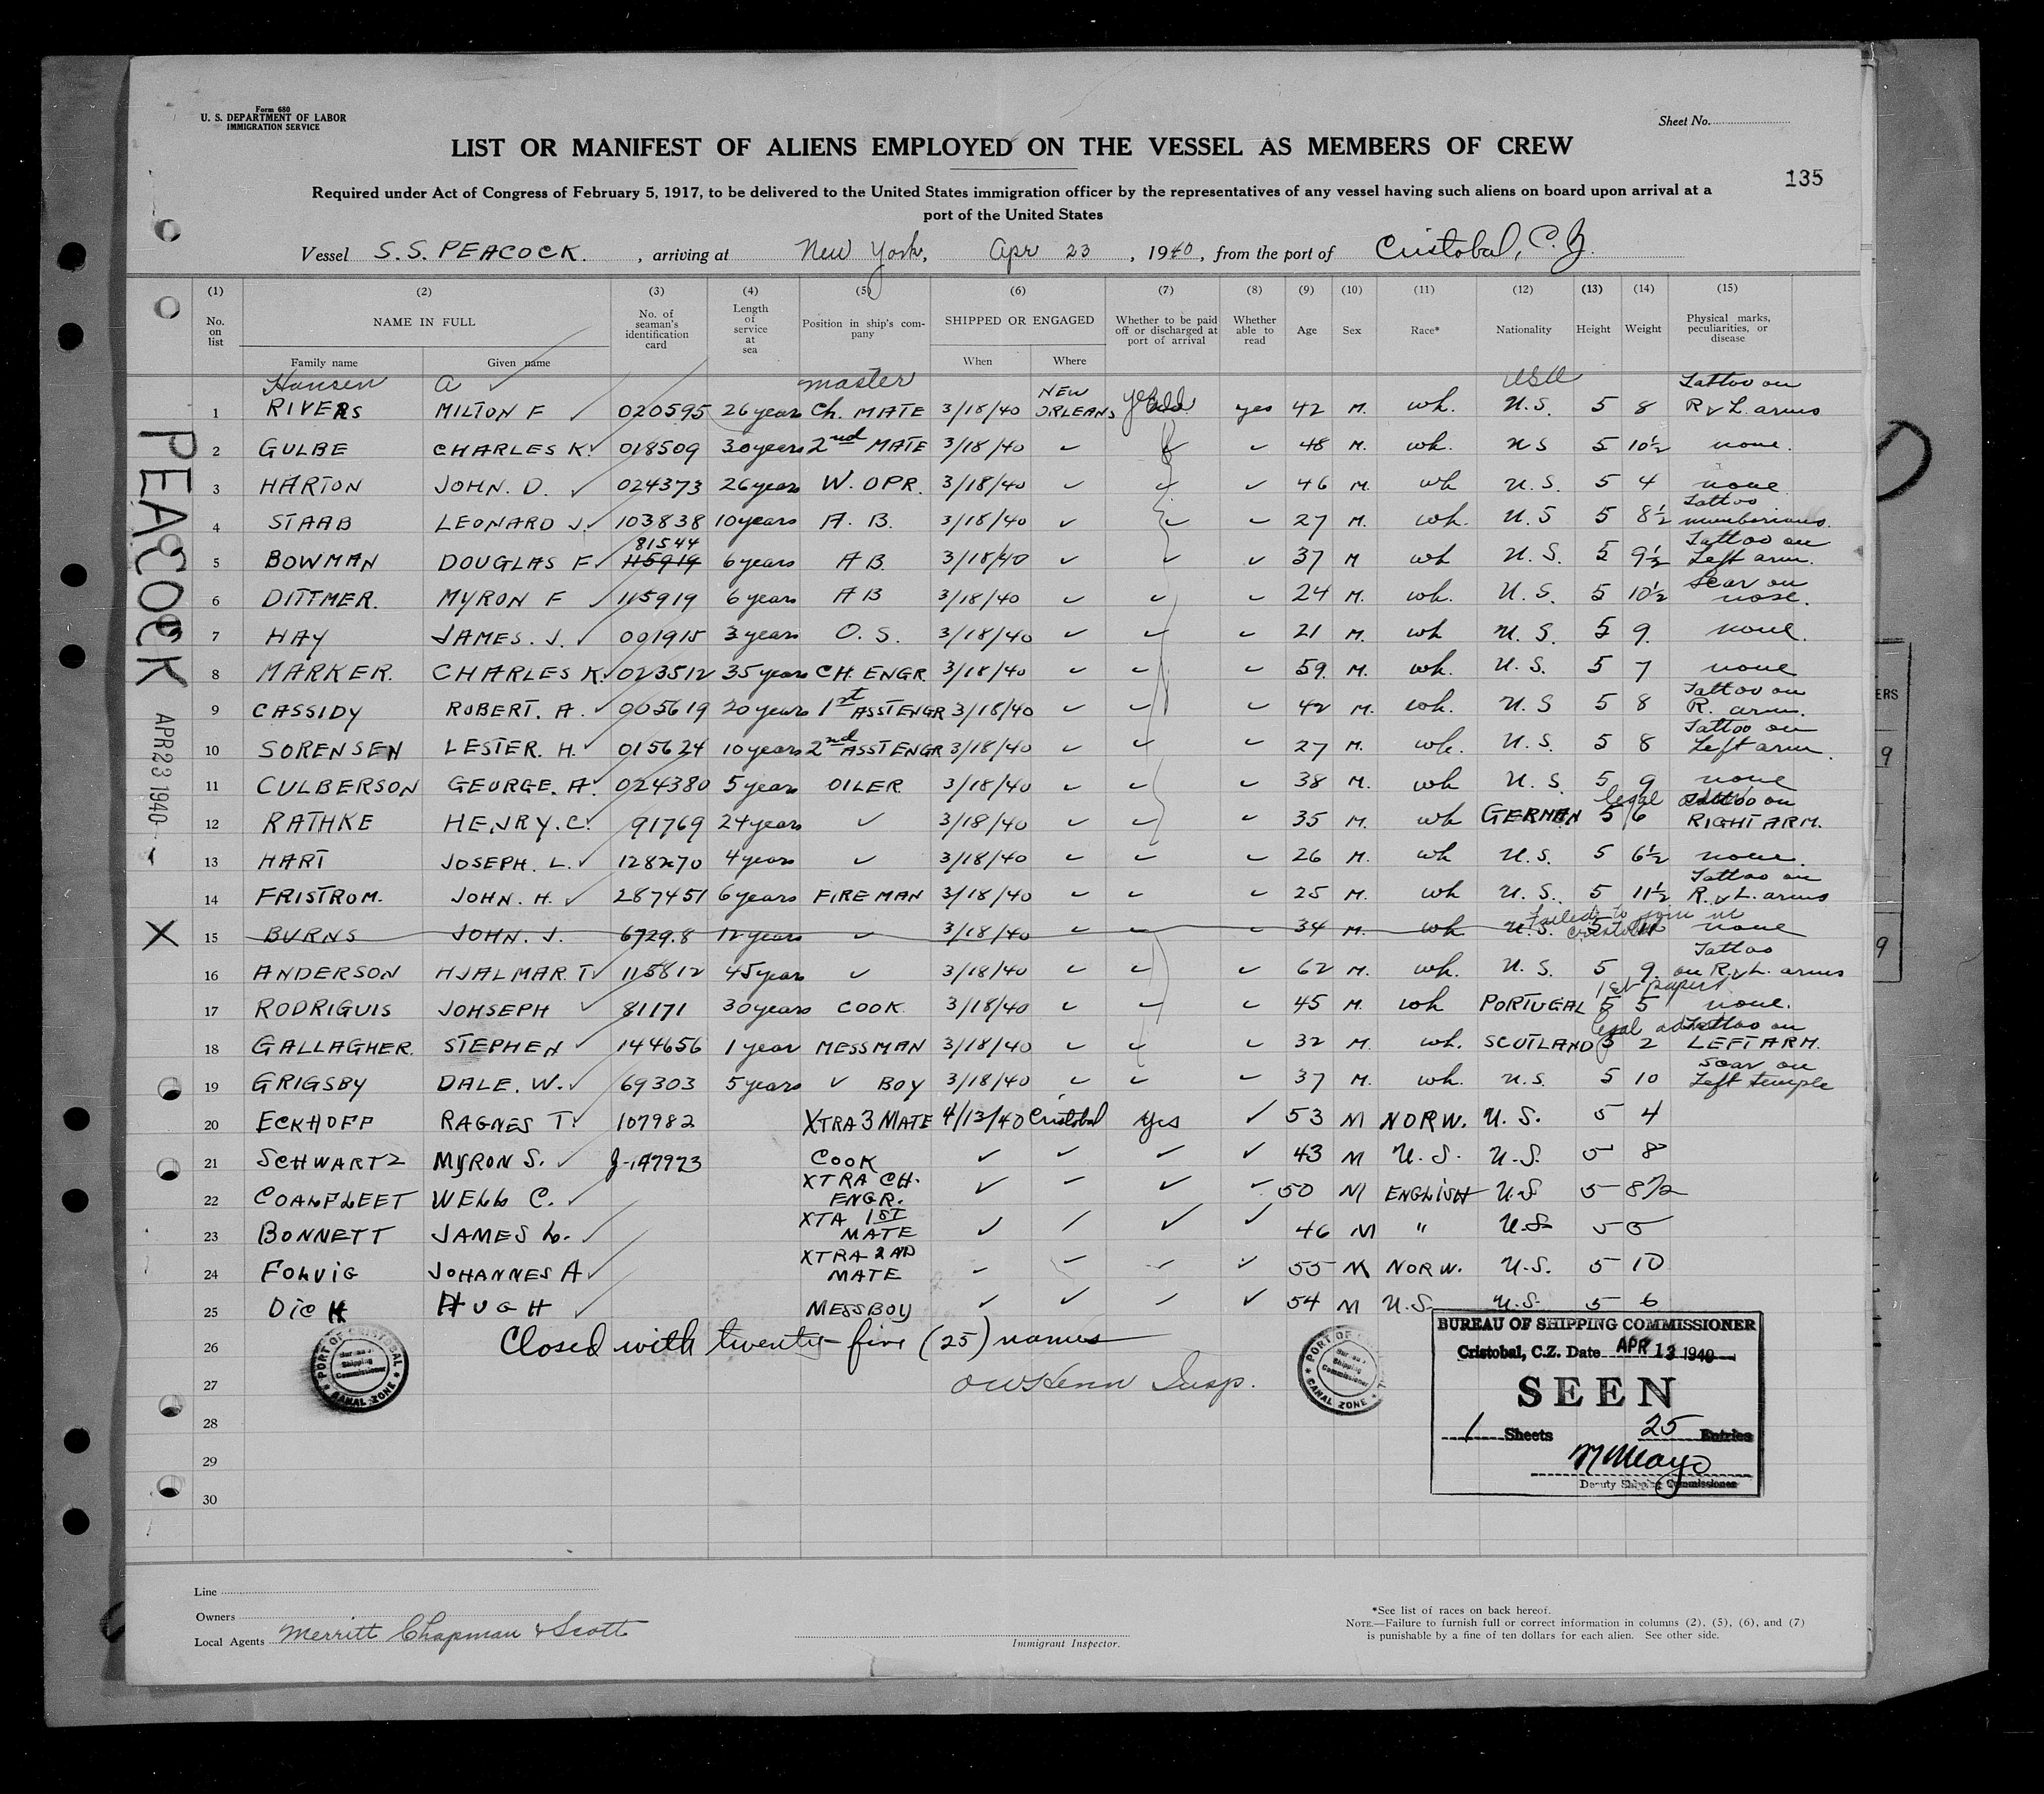 Form 680
U. S. DEPARTMENT OF LABOR
IMMIGRATION SERVICE
Sheet No.
LIST OR MANIFEST OF ALIENS EMPLOYED ON THE VESSEL AS MEMBERS OF CREW
135
Required under Act of Congress of February 5, 1917, to be delivered to the United States immigration officer by the representatives of any vessel having such aliens on board upon arrival at a
port of the United States
Vessel S.S. PEACOCK. , arriving at New York, Apr 23 , 1940 , from the port of Cristobal, C.Z.
(1) (2) (3) (4) (5) (6) (7) (8) (9) (10) (11) (12) (13) (14) (15)
No. on list NAME IN FULL Family name Given name No. of seaman's identification card Length of service at sea Position in ship's company SHIPPED OR ENGAGED When Where Whether to be paid off or discharged at port of arrival Whether able to read Age Sex Race* Nationality Height Weight Physical marks, peculiarities, or disease
Hansen A ✓ master USA
1 RIVERS MILTON F ✓ 020595 26 years Ch. MATE 3/18/40 NEW ORLEANS yes yes 42 M. wh. U.S. 5 8 Tattoo on R & L. arms
2 GULBE CHARLES K. ✓ 018509 30 years 2nd MATE 3/18/40 ✓ ✓ ✓ 48 M. wh. U S 5 10½ none.
3 HARTON JOHN. D. ✓ 024373 26 years W. OPR. 3/18/40 ✓ ✓ ✓ 46 M. wh U.S. 5 4 none
4 STAAB LEONARD J. ✓ 103838 10 years A. B. 3/18/40 ✓ ✓ ✓ 27 M. wh. U.S 5 8½ Tattoo
5 BOWMAN DOUGLAS F. ✓ 81544 115919 6 years A B. 3/18/40 ✓ ✓ ✓ 37 M wh U.S. 5 9½ Tattoo on Left arm.
6 DITTMER. MYRON F ✓ 115919 6 years A B 3/18/40 ✓ ✓ ✓ 24 M. wh. U.S. 5 10½ Scar on nose.
7 HAY JAMES. J. ✓ 001915 3 years O. S. 3/18/40 ✓ ✓ ✓ 21 M. wh U.S. 5 9. none.
8 MARKER. CHARLES K. ✓ 023512 35 years CH. ENGR. 3/18/40 ✓ ✓ ✓ 59. M. wh. U.S. 5 7 none
9 CASSIDY ROBERT. A. ✓ 005619 20 years 1st ASST ENGR 3/18/40 ✓ ✓ ✓ 42 M. wh. U.S 5 8 Tattoo on R. arm.
10 SORENSEN LESTER. H. ✓ 015624 10 years 2nd ASST ENGR 3/18/40 ✓ ✓ ✓ 27 M. wh. U.S. 5 8 Tattoo on Left arm.
11 CULBERSON GEORGE. A. ✓ 024380 5 years OILER 3/18/40 ✓ ✓ ✓ 38 M. wh U.S. 5 9 none
12 RATHKE HENRY. C. ✓ 91769 24 years ✓ 3/18/40 ✓ ✓ ✓ 35 M. wh GERMAN legal 5 6 Tattoo on RIGHT ARM.
13 HART JOSEPH. L. ✓ 128270 4 years ✓ 3/18/40 ✓ ✓ ✓ 26 M. wh U.S. 5 6½ none.
14 FRISTROM. JOHN. H. ✓ 287451 6 years FIREMAN 3/18/40 ✓ ✓ ✓ 25 M. wh U.S. 5 11½ Tattoo on R. & L. arms
X 15 BURNS JOHN. J. 67298 12 years ✓ 3/18/40 ✓ ✓ ✓ 34 M. wh U.S. Failed to join in Cristobal 5 11 none
16 ANDERSON HJALMAR. T. ✓ 115812 45 years ✓ 3/18/40 ✓ ✓ ✓ 62 M. wh. U.S. 5 9. Tattoo on R. & L. arms
17 RODRIGUIS JOHSEPH ✓ 81171 30 years COOK 3/18/40 ✓ ✓ ✓ 45 M. wh PORTUGAL 1st papers 5 5 none.
18 GALLAGHER. STEPHEN ✓ 144656 1 year MESSMAN 3/18/40 ✓ ✓ ✓ 32 M. wh. SCOTLAND legal 5 2 Tattoo on LEFT ARM.
19 GRIGSBY DALE. W. ✓ 69303 5 years ✓ BOY 3/18/40 ✓ ✓ ✓ 37 M. wh. U.S. 5 10 Scar on Left temple
20 ECKHOFF RAGNES T. ✓ 107982 XTRA 3 MATE 4/13/40 Cristobal yes ✓ 53 M NORW. U.S. 5 4
21 SCHWARTZ MYRON S. ✓ COOK ✓ ✓ ✓ ✓ 43 M U.S. U.S. 5 8
22 COALFLEET WELL C. ✓ XTRA CH. ENGR. ✓ ✓ ✓ ✓ 50 M ENGLISH U.S 5 8½
23 BONNETT JAMES L. ✓ XTA 1ST MATE ✓ ✓ ✓ ✓ 46 M " U.S. 5 5
24 FOLVIG JOHANNES A ✓ XTRA 2ND MATE ✓ ✓ ✓ ✓ 55 M NORW. U.S. 5 10
25 DICK HUGH ✓ MESSBOY ✓ ✓ ✓ ✓ 54 M U.S. U.S. 5 6
26 Closed with twenty-five (25) names
27 Insp.
28
29
30
PORT OF CRISTOBAL
Bureau of Shipping Commissioner
CANAL ZONE
PORT OF
Bureau of Shipping Commissioner
CANAL ZONE
BUREAU OF SHIPPING COMMISSIONER
Cristobal, C.Z. Date APR 13 1940
SEEN
1 Sheets 25 Entries
Deputy Shipping Commissioner
PEACOCK
APR 23 1940
ERS
9
9
Line
Owners
Local Agents Merritt Chapman & Scott
Immigrant Inspector.
*See list of races on back hereof.
NOTE.—Failure to furnish full or correct information in columns (2), (5), (6), and (7)
is punishable by a fine of ten dollars for each alien. See other side.